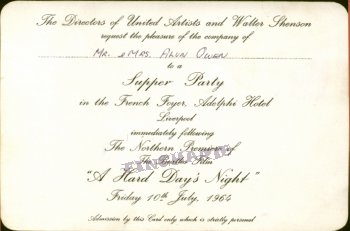 The Directors of United Artists and Walter Shenson
request the pleasure of the company of
Mr. & Mrs. Alun Owen
to a
Supper Party
in the French Foyer, Adelphi Hotel
Liverpool
immediately following
The Northern Premiere of
The Beatles Film
"A Hard Day's Night"
Friday 10th July, 1964
Admission by this Card only which is strictly personal